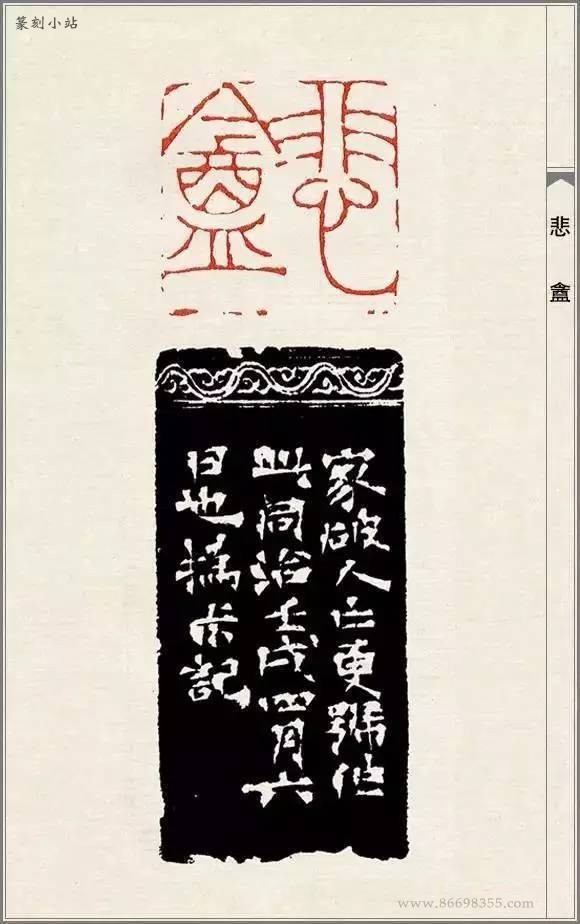 篆刻小站
悲盦
悲盦
家破人亡更號作
此同治壬戌四月六
日也撝尗記
www.86698355.com